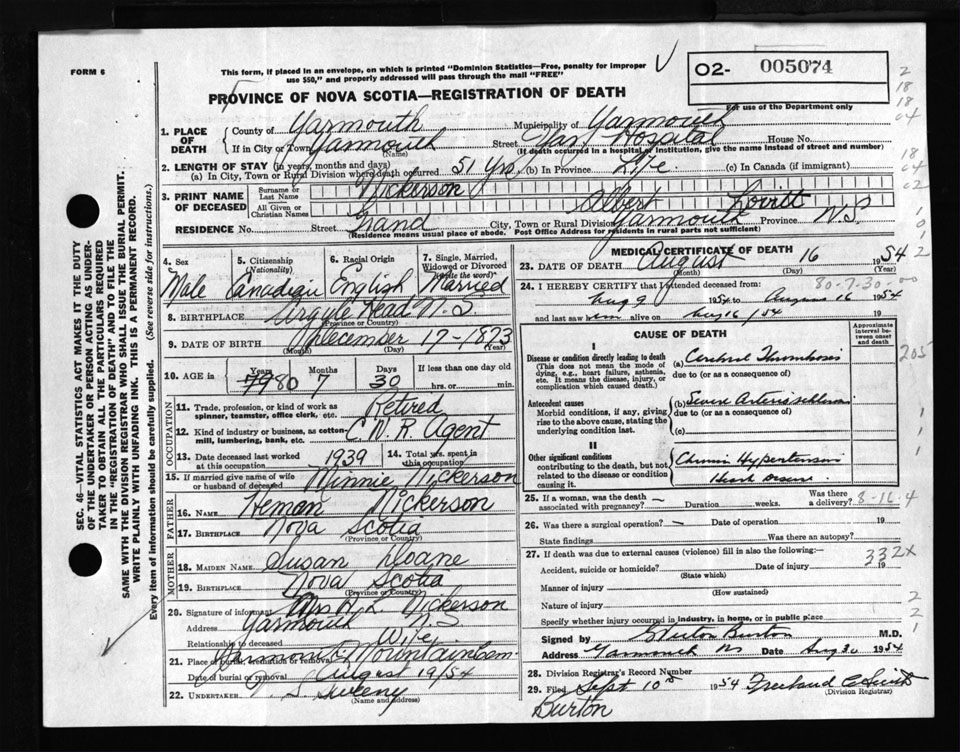 FORM 6
This form, if placed in an envelope, on which is printed "Dominion Statistics—Free, penalty for improper
use $50," and properly addressed will pass through the mail "FREE"
02- 005074
For use of the Department only
PROVINCE OF NOVA SCOTIA—REGISTRATION OF DEATH
1. PLACE OF DEATH
County of Yarmouth Municipality of Yarmouth
If in City or Town Yarmouth (Name) Street Yar. Hospital House No.
(If death occurred in a hospital or institution, give the name instead of street and number)
2. LENGTH OF STAY (in years, months and days)
(a) In City, Town or Rural Division where death occurred 51 Yrs. (b) In Province Life (c) In Canada (if immigrant)
3. PRINT NAME OF DECEASED
Surname or Last Name Nickerson
All Given or Christian Names Albert Lovitt
RESIDENCE No. Street Grand City, Town or Rural Division Yarmouth Province N.S.
(Residence means usual place of abode. Post Office Address for residents in rural parts not sufficient)
4. Sex Male
5. Citizenship (Nationality) Canadian
6. Racial Origin English
7. Single, Married, Widowed or Divorced (write the word) Married
8. BIRTHPLACE Argyle Head N.S.
(Province or Country)
9. DATE OF BIRTH December 17-1873
(Month) (Day) (Year)
10. AGE in Years 79 80 Months 7 Days 30 If less than one day old
hrs. or min.
OCCUPATION
11. Trade, profession, or kind of work as spinner, teamster, office clerk, etc. Retired
12. Kind of industry or business, as cotton-mill, lumbering, bank, etc. C.N.R. Agent
13. Date deceased last worked at this occupation 1939
14. Total yrs. spent in this occupation
15. If married give name of wife or husband of deceased Minnie Nickerson
FATHER
16. NAME Heman Nickerson
17. BIRTHPLACE Nova Scotia
(Province or Country)
MOTHER
18. MAIDEN NAME Susan Doane
19. BIRTHPLACE Nova Scotia
(Province or Country)
20. Signature of informant Mrs A. L. Nickerson
Address Yarmouth N.S
Relationship to deceased Wife
21. Place of burial, cremation or removal Mountain Cem
Date of burial or removal August 19/54
22. UNDERTAKER Sweeny
(Name and address)
MEDICAL CERTIFICATE OF DEATH
23. DATE OF DEATH August 16 1954
(Month) (Day) (Year)
80-7-30-00
24. I HEREBY CERTIFY that I attended deceased from:
Aug 9 1954 to August 16 1954
and last saw him alive on Aug 16/54 19
CAUSE OF DEATH
Approximate interval between onset and death
I
Disease or condition directly leading to death
(This does not mean the mode of dying, e.g., heart failure, asthenia, etc. It means the disease, injury, or complication which caused death.)
(a) Cerebral Thrombosis
due to (or as a consequence of)
Antecedent causes
Morbid conditions, if any, giving rise to the above cause, stating the underlying condition last.
(b) Severe Arteriosclerosis
due to (or as a consequence of)
(c)
II
Other significant conditions contributing to the death, but not related to the disease or condition causing it.
Chronic Hypertension
Heart Disease
25. If a woman, was the death associated with pregnancy? — Duration weeks. Was there a delivery? 8-16-4
26. Was there a surgical operation? — Date of operation 19
State findings Was there an autopsy?
27. If death was due to external causes (violence) fill in also the following:—
Accident, suicide or homicide? Date of injury 19
(State which)
332X
Manner of injury
(How sustained)
Nature of injury
Specify whether injury occurred in industry, in home, or in public place
Signed by Burton M.D.
Address Yarmouth NS Date Aug 30 1954
28. Division Registrar's Record Number
29. Filed Sept 10th 1954
(Division Registrar)
Burton
SEC. 46—VITAL STATISTICS ACT MAKES IT THE DUTY
OF THE UNDERTAKER OR PERSON ACTING AS UNDER-
TAKER TO OBTAIN ALL THE PARTICULARS REQUIRED
IN THE "REGISTRATION OF DEATH" AND TO FILE THE
SAME WITH THE DIVISION REGISTRAR WHO SHALL ISSUE THE BURIAL PERMIT.
WRITE PLAINLY WITH UNFADING INK. THIS IS A PERMANENT RECORD.
Every item of information should be carefully supplied. (See reverse side for instructions.)
2
18
18
04
18
04
02
205